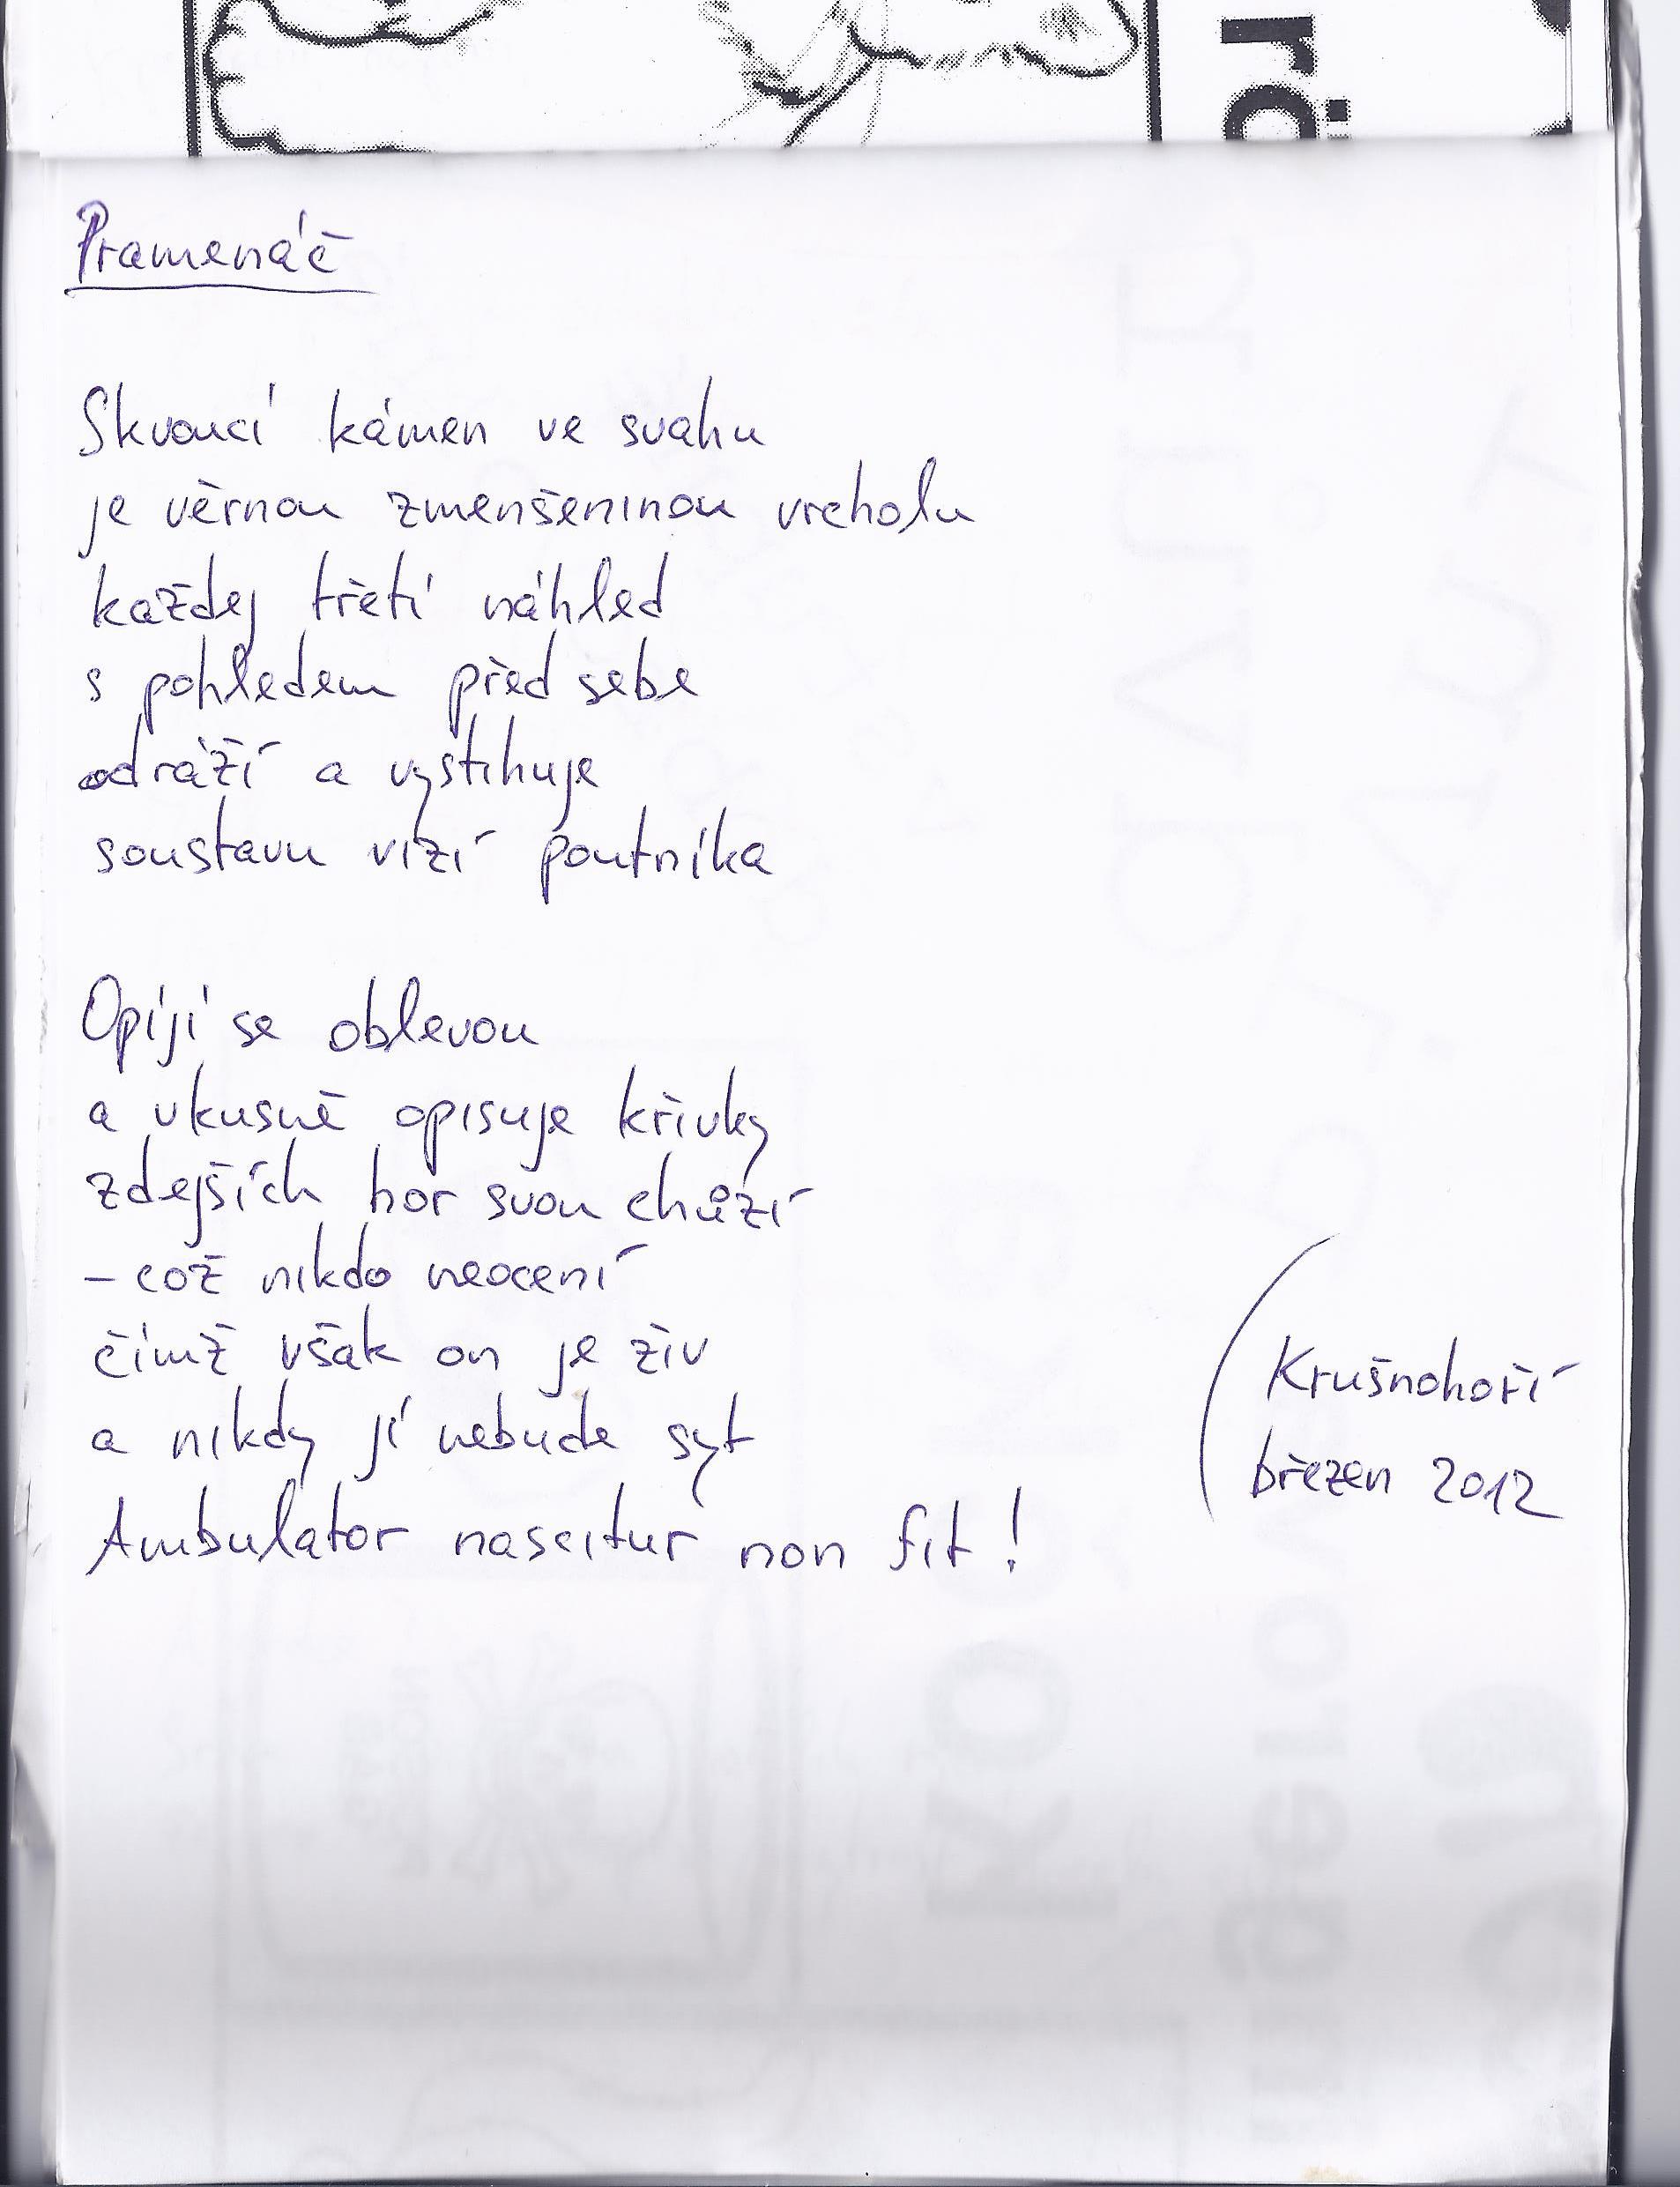 Pramenáč
Skvoucí kámen ve svahu
je věrnou zmenšeninou vrcholu
každej třetí náhled
s pohledem před sebe
odráží a vystihuje
soustavu vizí poutníka
Opíjí se oblevou
a vkusně opisuje křivky
zdejších hor svou chůzí
– což nikdo neocení
čímž však on je živ
a nikdy jí nebude syt
Ambulator nascitur non fit!
Krušnohoří
březen 2012